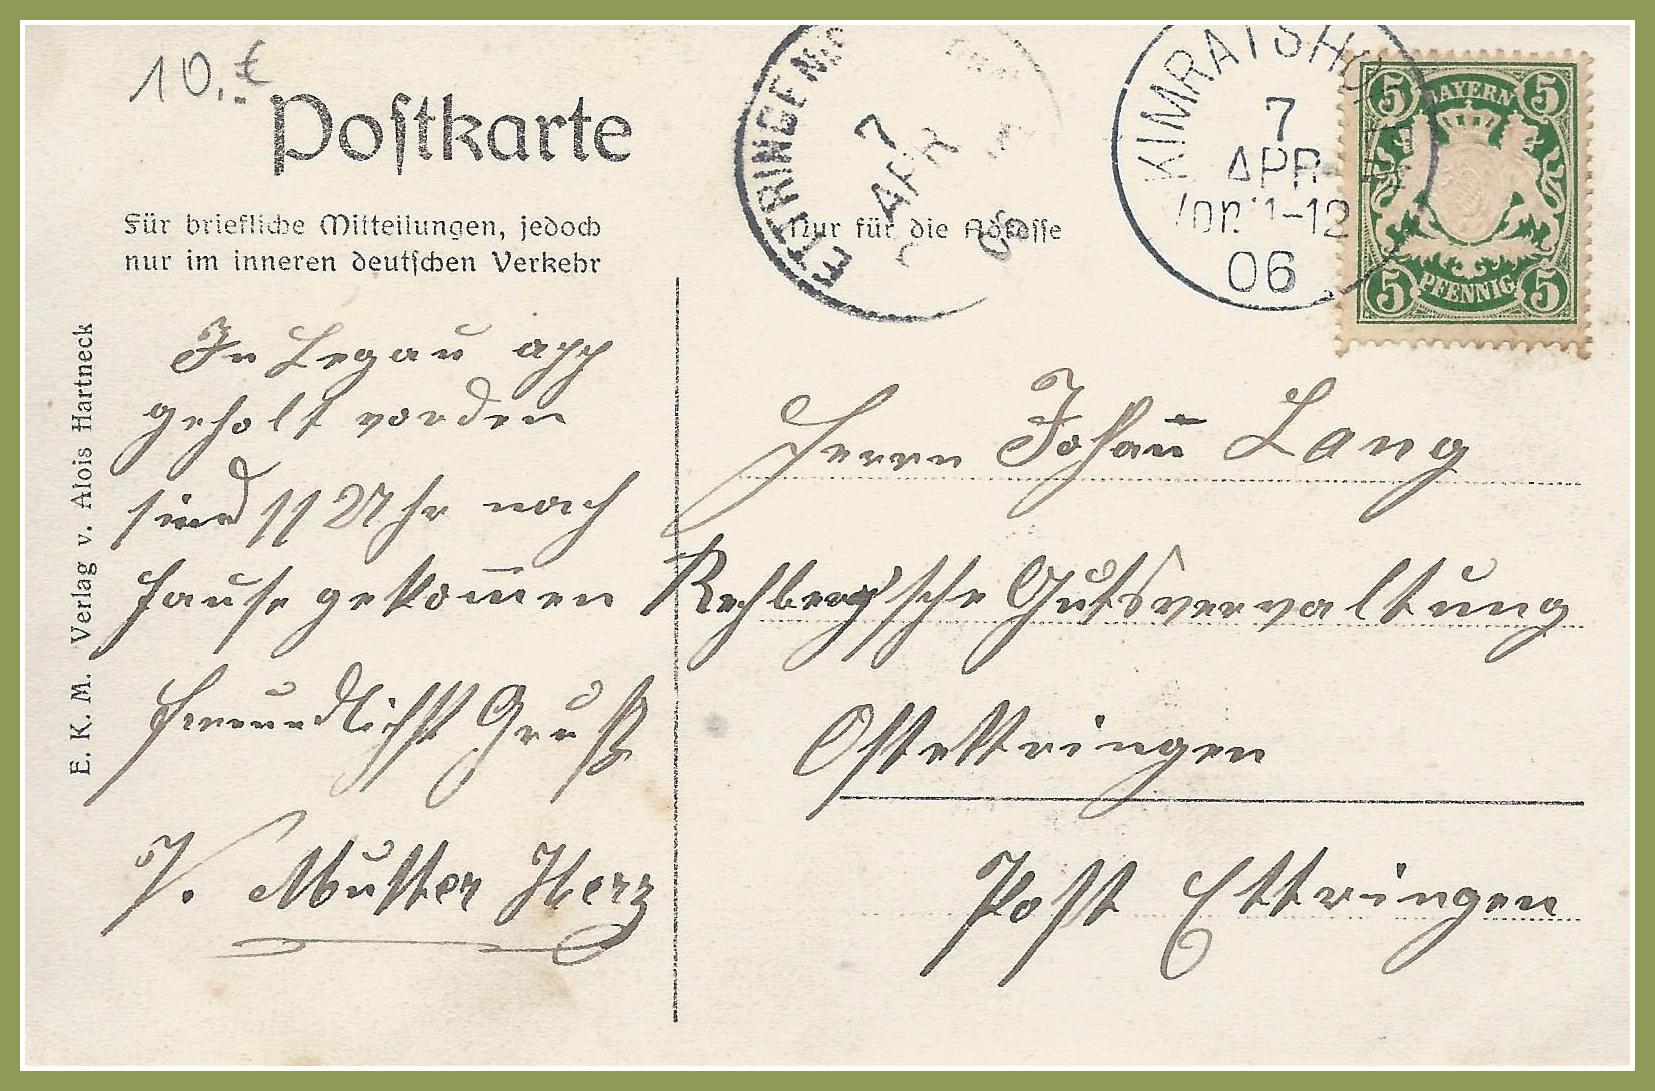 10.€
Postkarte
Für briefliche Mitteilungen, jedoch
nur im inneren deutschen Verkehr
Nur für die Adresse
ETTRINGEN
7
APR
06
KIMRATSHOFEN
7
APR
Vorm 11-12
06
5 BAYERN 5
5 PFENNIG 5
E. K. M. Verlag v. Alois Hartneck
In Legau app
geholt vorden
sind 11 Uhr nach
hause gekom̅en
freundlichst Gruß
V. Mutter Herz
Herrn Johan̅ Lang
Rechberg'sche Gutsvervaltung
Ostettringen
Post Ettringen